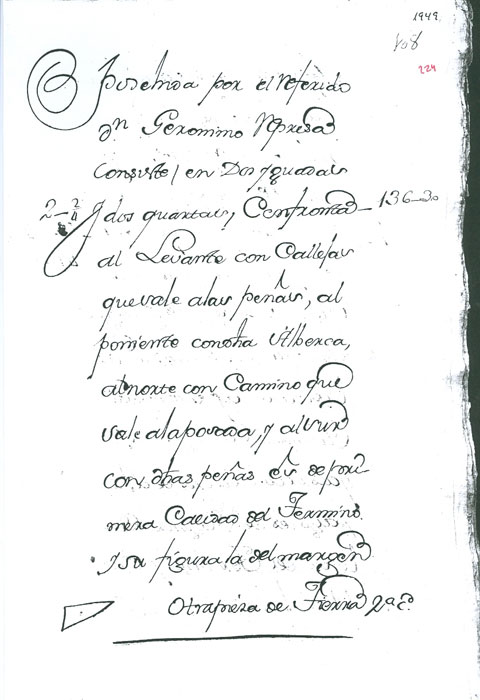 1949.
224
posehida por el Referido
Dn Geronimo
Consiste en Dos Yguadas
2-2/4 y dos quartas, Confronta 136-30
al Levante con Callejas
que vale a las peñas, al
poniente con dha Alberca,
al norte con Camino que
vale a la posada, y al sur
con dhas peñas. es de pri
mera Calidad del Termino.
y su figura la del margen
Otra pieza de Tierra